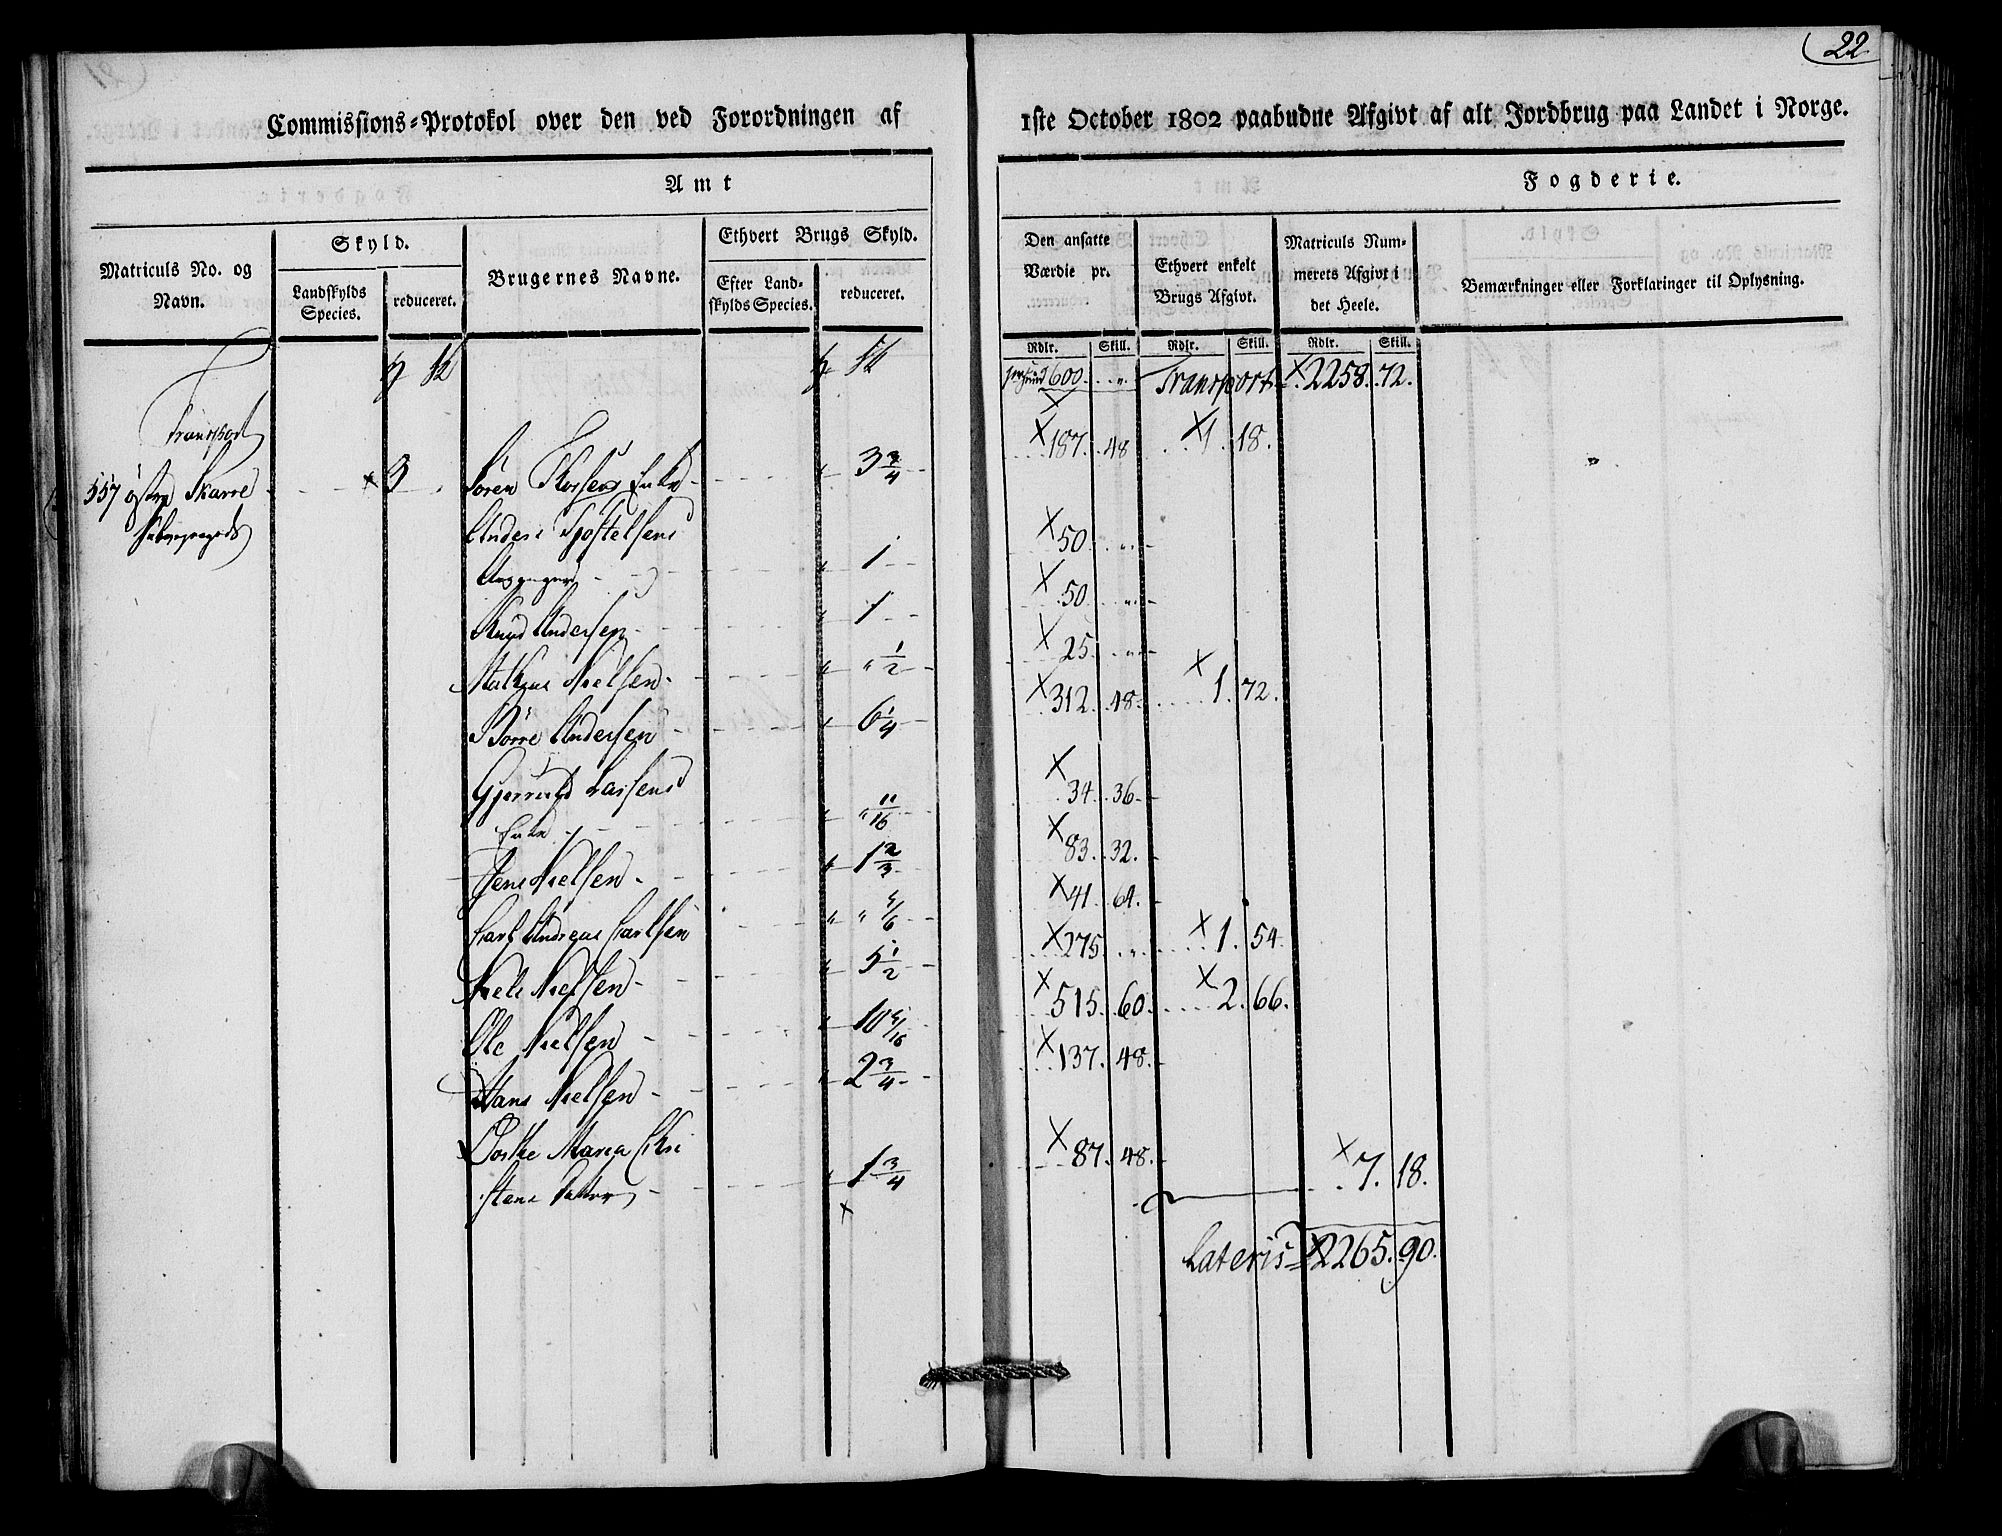 22
Commissions-Protokol over den ved Forordningen af 1ste October 1802 paabudne Afgivt af alt Jordbrug paa Landet i Norge.
Amt Fogderie.
Matriculs No. og Navn.
Skyld.
Landskylds Species.
reduceret.
Brugernes Navne.
Ethvert Brugs Skyld.
Efter Landskylds Species.
reduceret.
Den ansatte Værdie pr.
Ethvert enkelt Brugs Afgivt.
Matriculs Nummerets Afgivt i det Heele.
Bemærkninger eller Forklaringer til Oplysning.
Rdlr. Skill. Rdlr. Skill. Rdlr. Skill.
600 Transport 2258. 72.
Transport
557 østre Skarre 3 Søren Enke 3 3/4 187. 48 1. 18.
Anders
1 50
Knud Andersen 1 50
Nielsen 1/2 25
Børre Andersen 6 1/4 312. 48 1. 72.
Larsens
Enke 11/16 34. 36
Jens Nielsen 1 2/3 83. 32.
Carl Andreas Carlsen 5/6 41. 64.
Niels Nielsen 5 1/2 275 1. 54.
Ole Nielsen 10 5/16 515. 60 2. 66.
Hans Nielsen 2 3/4 137. 48.
Maria Chri
stens 1 3/4 87. 48. 7. 18.
Lateris 2265. 90.